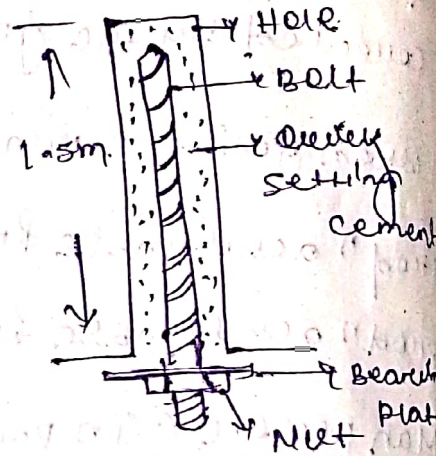 Hole
Bolt
1.5m.
Quick
setting
cement
Bearin
Plat
Nut